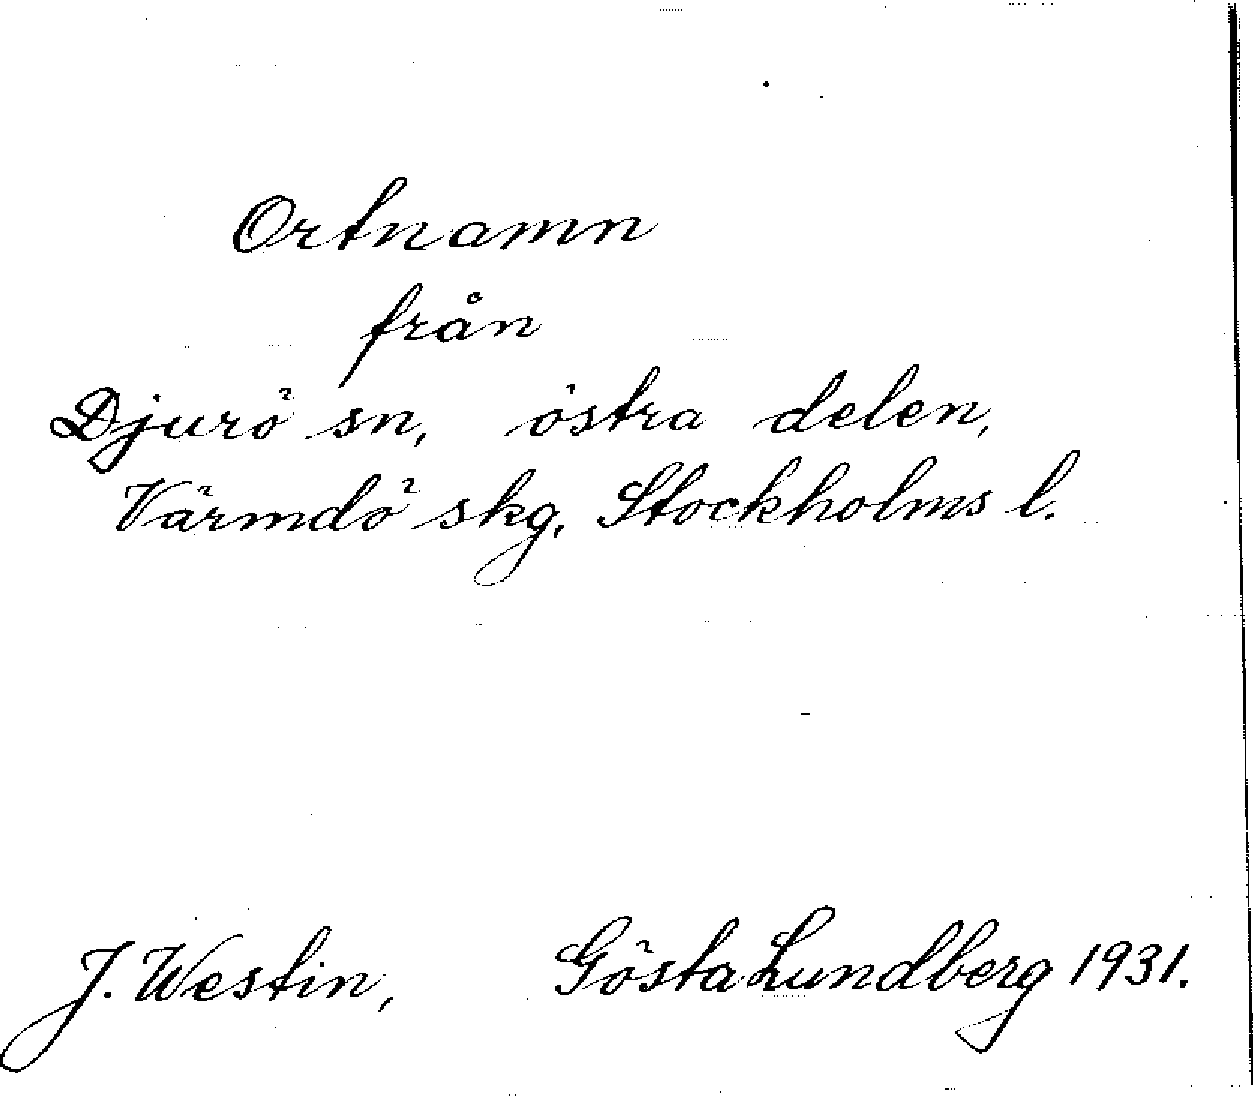 Ortnamn
från
Djurö sn, östra delen,
Värmdö skg, Stockholms l.
J. Westin, Gösta Lundberg 1931.